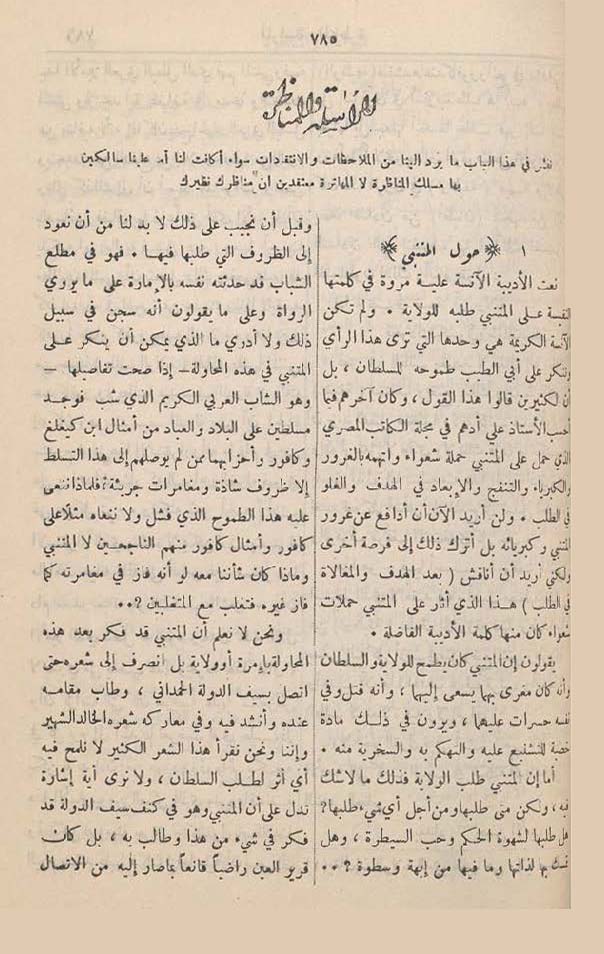 ٧٨٥
المراسلة والمناظرة
ننشر في هذا الباب ما يرد الينا من الملاحظات والانتقادات سواء أكانت لنا أم علينا سالكين
بها مسلك المناظرة لا المهاترة معتقدين ان مناظرك نظيرك
١ حول المتنبي
نعت الأديبة الآنسة علية مروة في كلمتها
النفيسة على المتنبي طلبه للولاية . ولم تكن
الآنسة الكريمة هي وحدها التي ترى هذا الرأي
وتنكر على أبي الطيب طموحه للسلطان ، بل
أن لكثيرين قالوا هذا القول ، وكان آخرهم فيما
أحسب الأستاذ علي أدهم في مجلة الكاتب المصري
الذي حمل على المتنبي حملة شعواء واتهمه بالغرور
والكبرياء والتنفج والإبعاد في الهدف والغلو
في الطلب . ولن أريد الآن أن أدافع عن غرور
المتنبي وكبريائه بل أترك ذلك إلى فرصة أخرى
ولكني أريد أن أناقش ( بعد الهدف والمغالاة
في الطلب ) هذا الذي أثار على المتنبي حملات
شعواء كان منها كلمة الأديبة الفاضلة .
يقولون إن المتنبي كان يطمح للولاية والسلطان
وأنه كان مغرى بهما يسعى إليهما ، وأنه قتل وفي
نفسه حسرات عليهما ، ويرون في ذلك مادة
خصبة للتشنيع عليه والتهكم به والسخرية منه .
أما إن المتنبي طلب الولاية فذلك ما لا شك
فيه ، ولكن متى طلبها ومن أجل أي شيء طلبها؟
هل طلبها لشهوة الحكم وحب السيطرة ، وهل
تمسك بها لذاتها وما فيها من إبهة وسطوة ؟ ..
وقبل أن نجيب على ذلك لا بد لنا من أن نعود
إلى الظروف التي طلبها فيها . فهو في مطلع
الشباب قد حدثته نفسه بالإمارة على ما يروي
الرواة وعلى ما يقولون أنه سجن في سبيل
ذلك ولا أدري ما الذي يمكن أن ينكر على
المتنبي في هذه المحاولة - إذا صحت تفاصيلها -
وهو الشاب العربي الكريم الذي شب فوجد
مسلطين على البلاد والعباد من أمثال ابن كيغلغ
وكافور وأحزابهما ممن لم يوصلهم إلى هذا التسلط
إلا ظروف شاذة ومغامرات جريئة؟ فلماذا ننعى
عليه هذا الطموح الذي فشل ولا ننعاه مثلا على
كافور وأمثال كافور منهم الناجحين لا المتنبي
وماذا كان شأننا معه لو أنه فاز في مغامرته كما
فاز غيره فتغلب مع المتغلبين ؟ ..
ونحن لا نعلم أن المتنبي قد فكر بعد هذه
المحاولة بإمرة أو ولاية بل انصرف إلى شعره حتى
اتصل بسيف الدولة الحمداني ، وطاب مقامه
عنده وأنشد فيه وفي معاركه شعره الخالد الشهير
وإننا ونحن نقرأ هذا الشعر الكثير لا نلمح فيه
أي أثر لطلب السلطان ، ولا نرى أية إشارة
تدل على أن المتنبي وهو في كنف سيف الدولة قد
فكر في شيء من هذا وطالب به ، بل كان
قرير العين راضياً قانعاً بما صار إليه من الاتصال